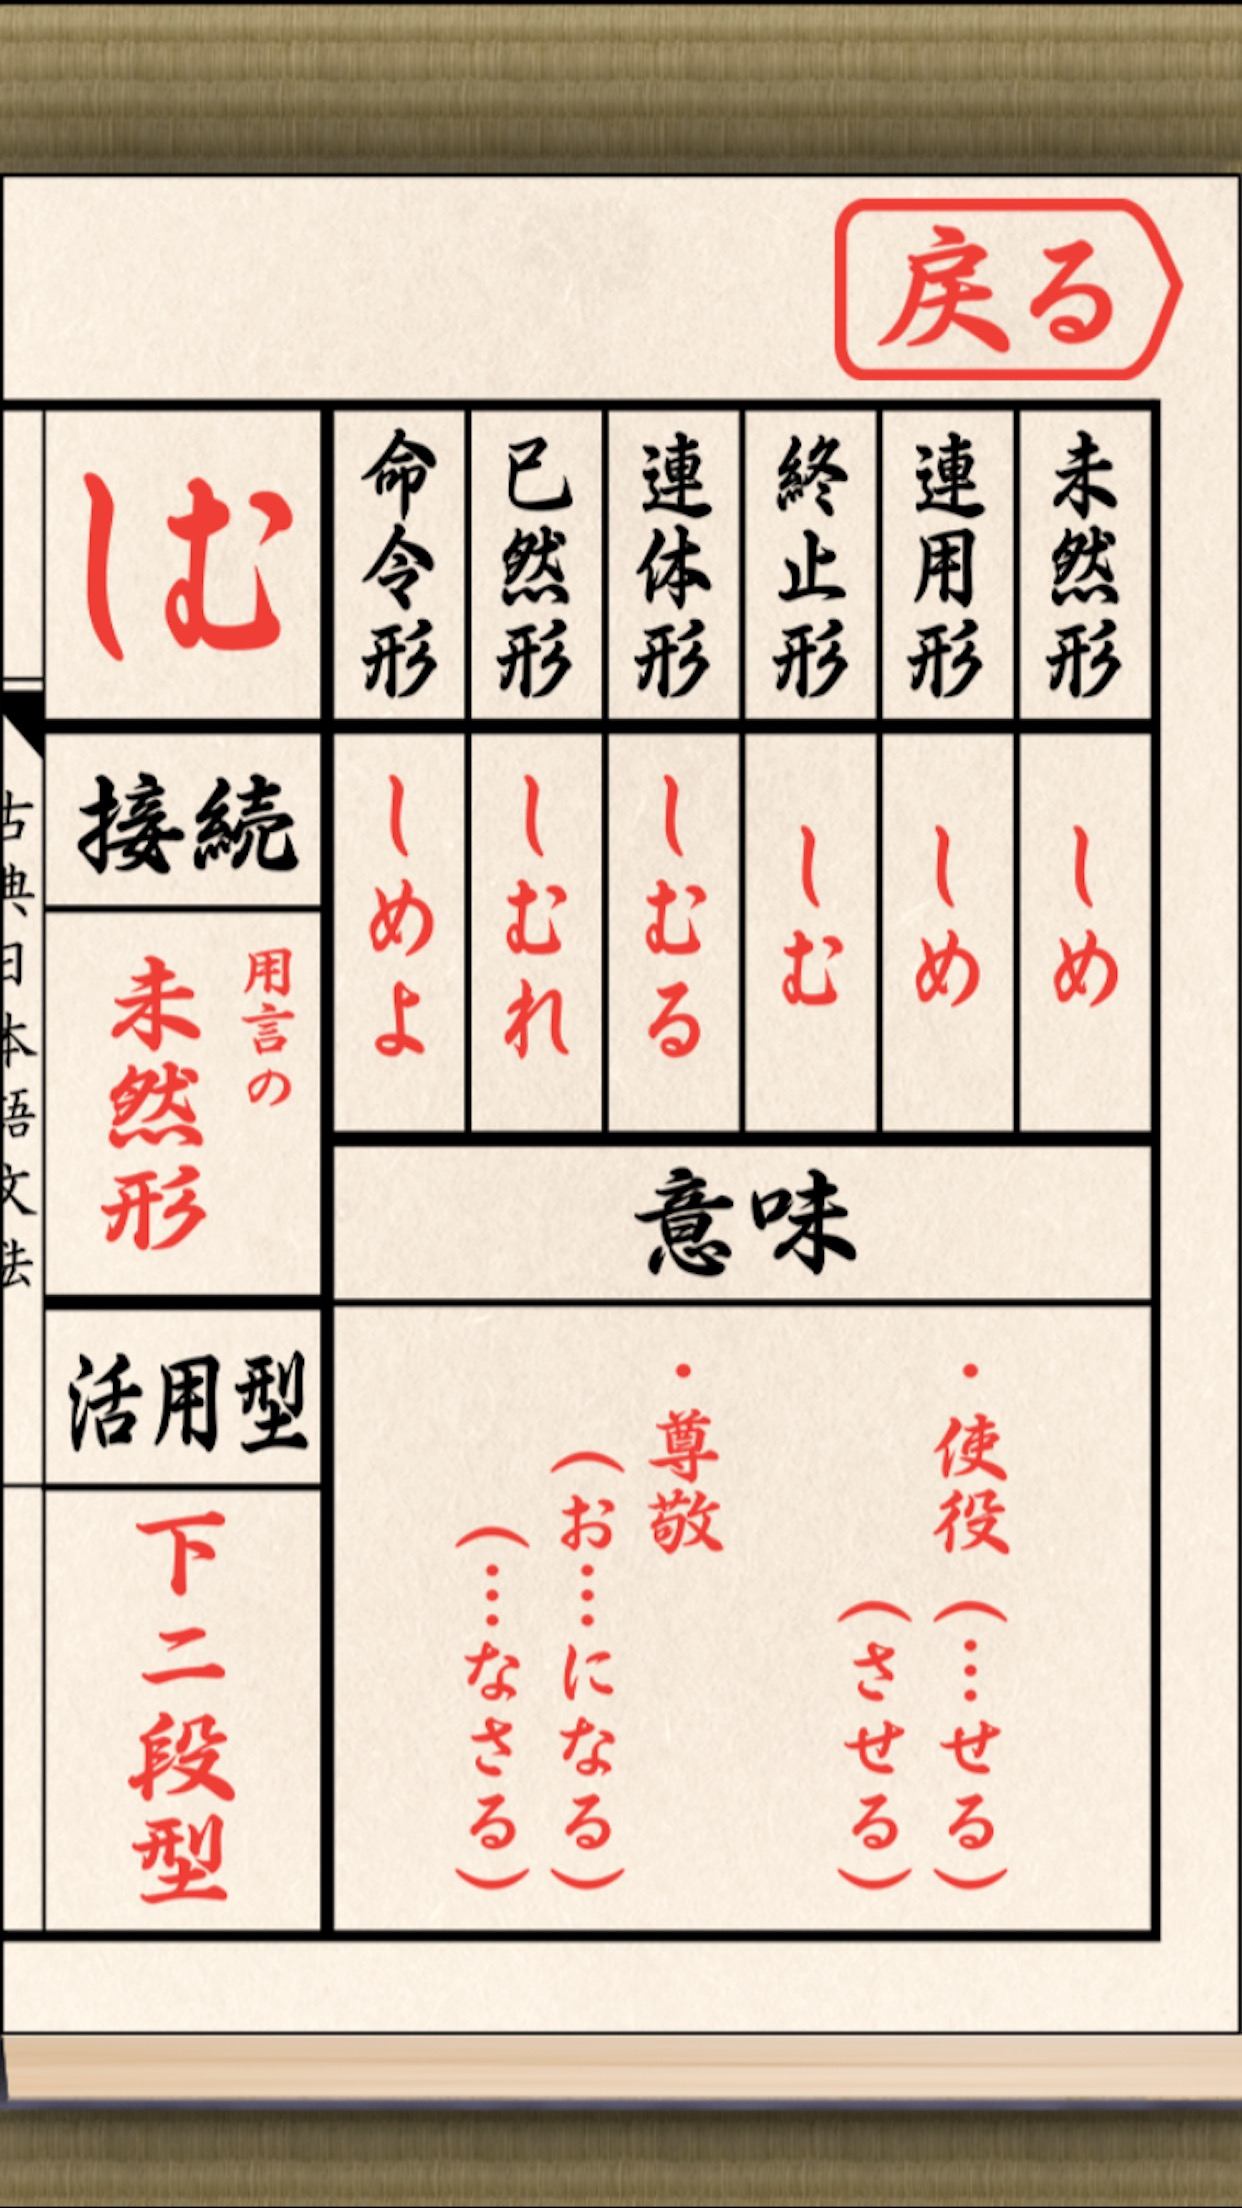 戻る
未然形
連用形
終止形
連体形
已然形
命令形
しむ
しめ
しめ
しむ
しむる
しむれ
しめよ
接続
用言の
未然形
意味
・使役(…せる)
(させる)
・尊敬
(お…になる)
(…なさる)
活用型
下二段型
古典日本語文法